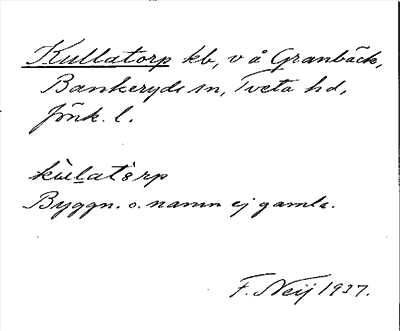 Kullatorp kb, v å Granbäck,
Bankeryds sn, Tveta hd,
Jönk. l.
kùlatòrp
Byggn. o. namn ej gamla.
F. Neij 1937.